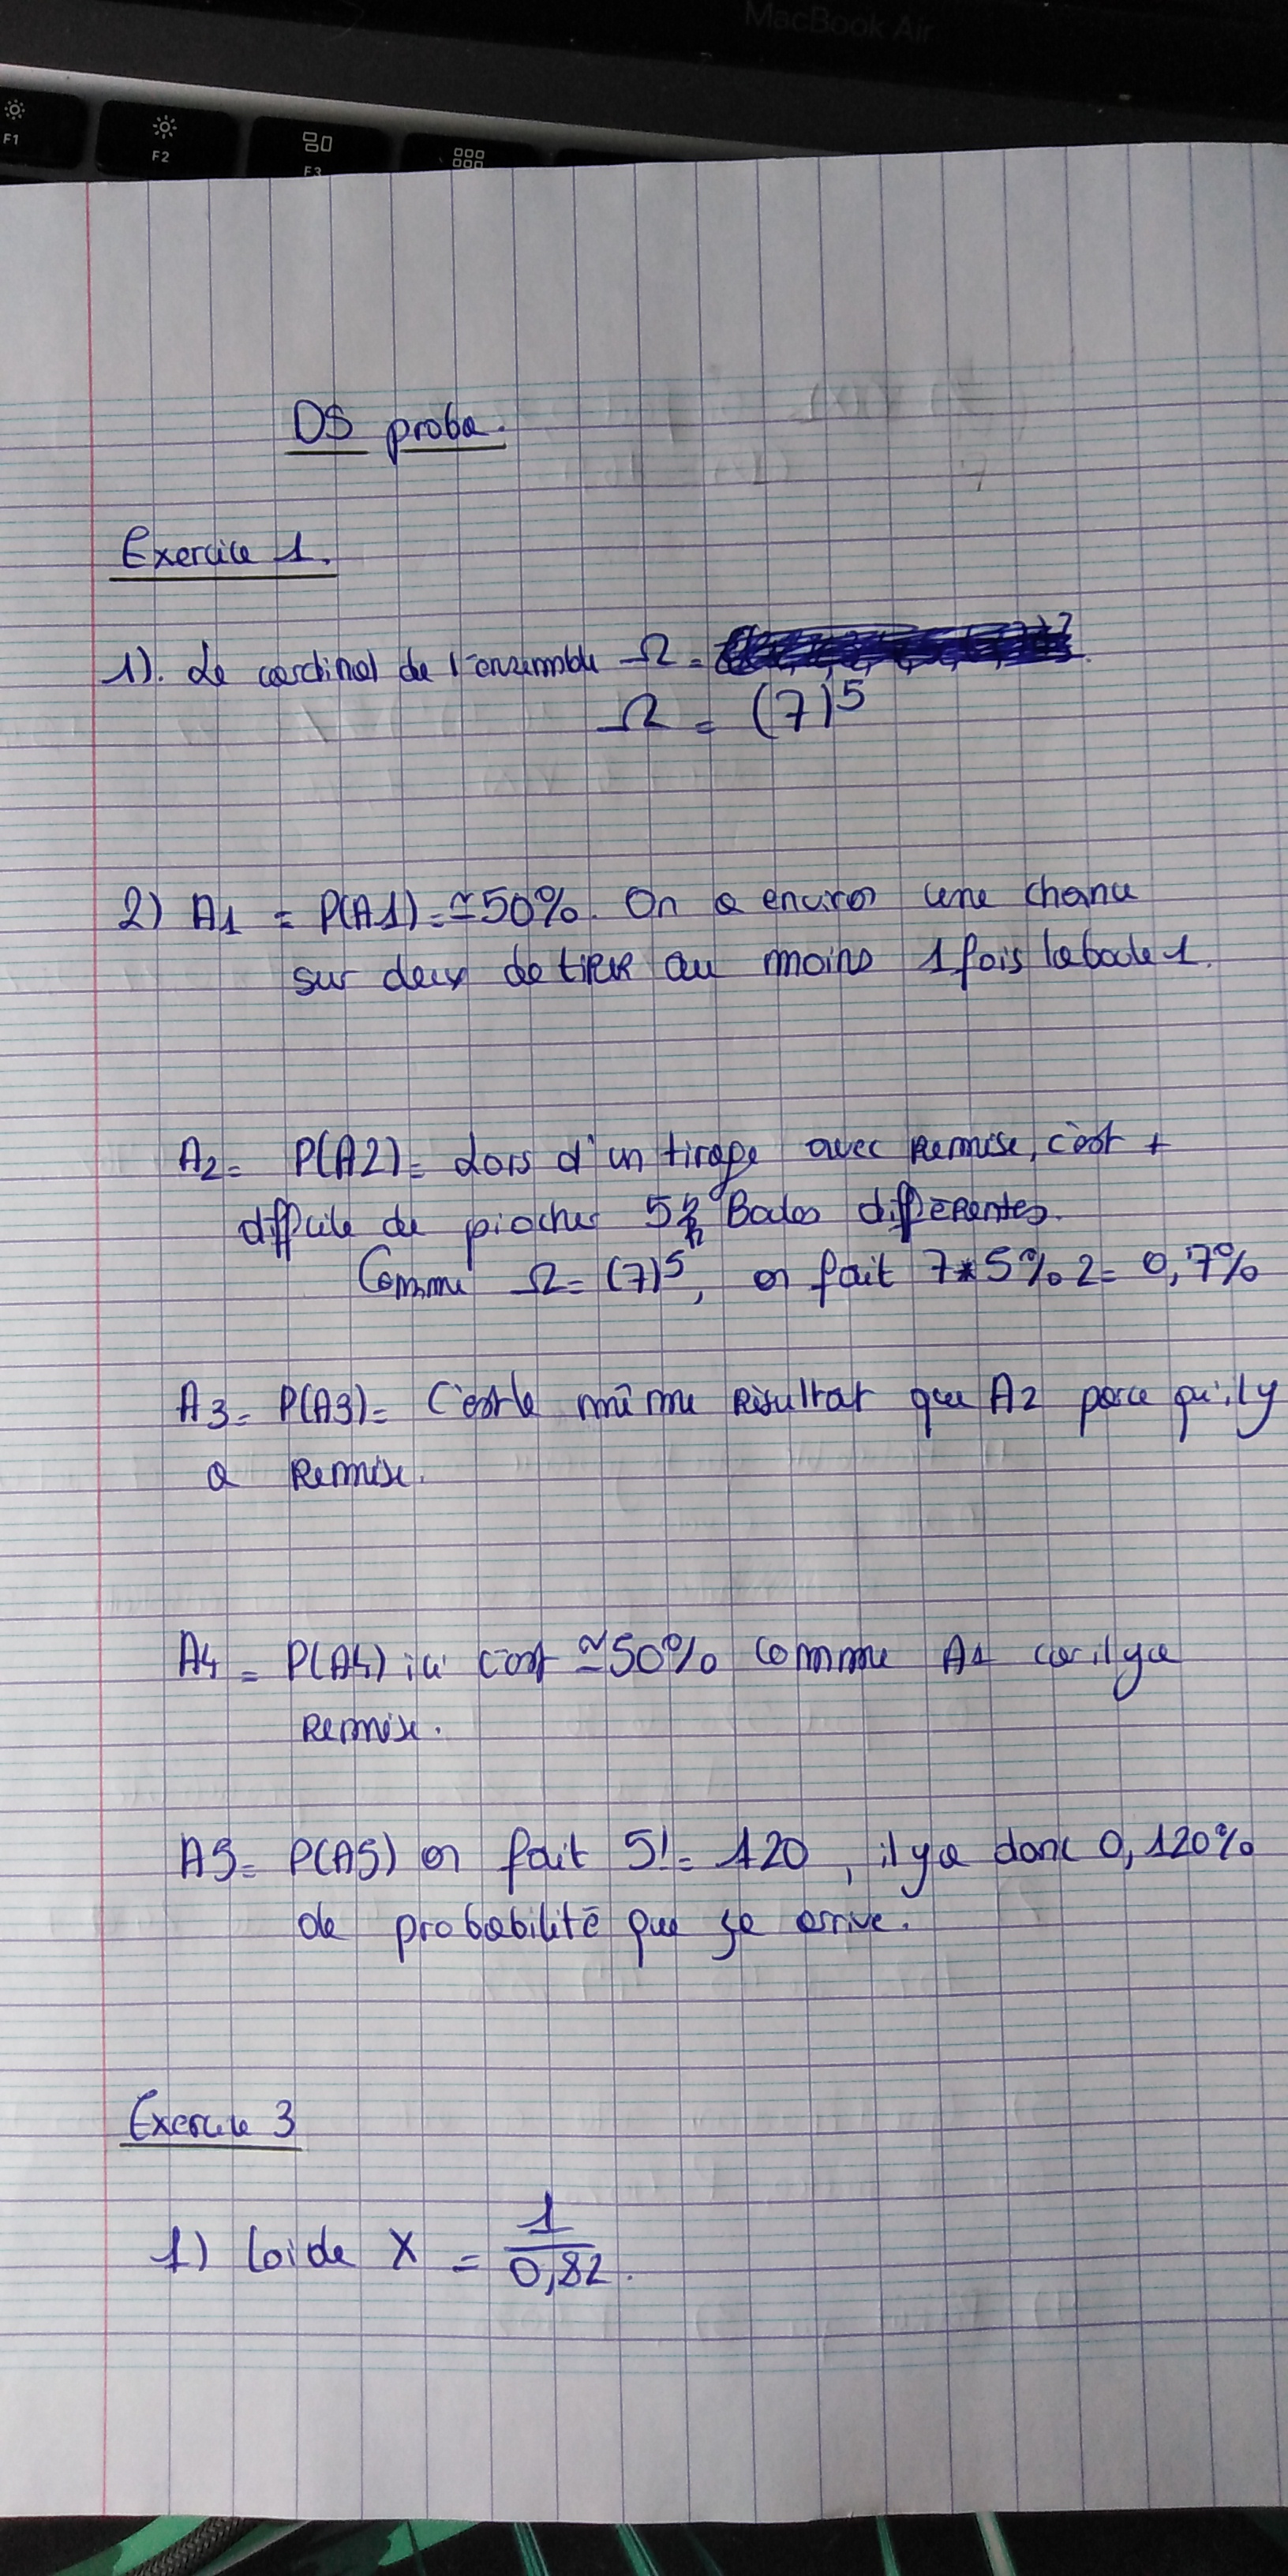 MacBook Air
F1
F2
F3
DS proba.
Exercice 1.
1). Le cardinal de l'ensemble Ω =
Ω = (7)⁵
2) A1 = P(A1) = ≃50%. On a environ une chance
sur deux de tirer au moins 1 fois la boule 1.
A2 = P(A2) = Lors d'un tirage avec remise, c'est +
difficile de piocher 5 Boules différentes.
Comme Ω = (7)⁵, on fait 7*5%2 = 0,7%
A3 = P(A3) = C'est le même résultat que A2 parce qu'il y
a remise.
A4 = P(A4) ici c'est ≃50% comme A1 car il y a
remise.
A5 = P(A5) on fait 5! = 120, il y a donc 0,120%
de probabilité que ça arrive.
Exercice 3
1) loi de X = 1/0,82.